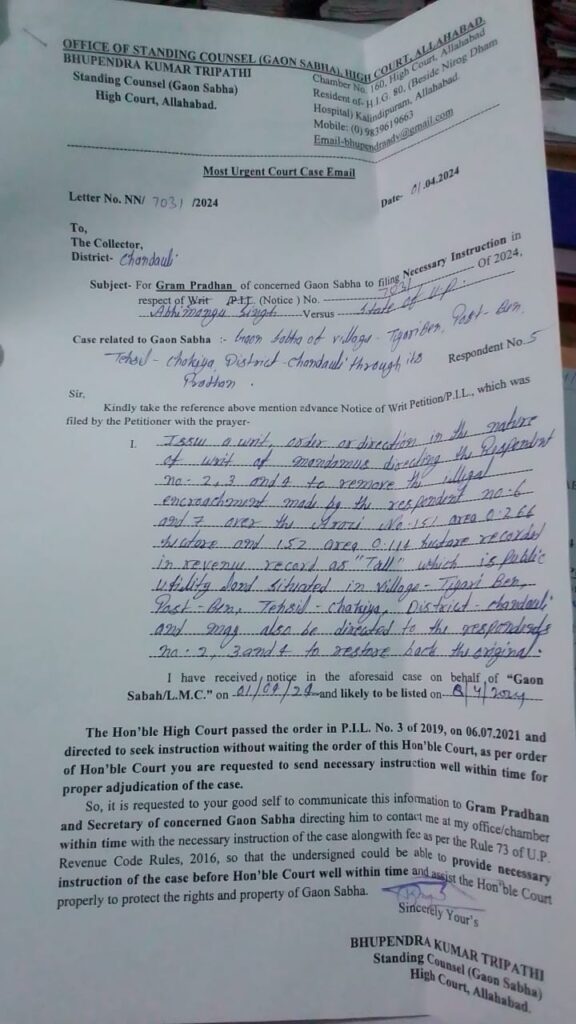 OFFICE OF STANDING COUNSEL (GAON SABHA), HIGH COURT, ALLAHABAD.
BHUPENDRA KUMAR TRIPATHI
Standing Counsel (Gaon Sabha)
High Court, Allahabad.
Chamber No. 160, High Court, Allahabad
Resident of- H.I.G. 80, (Beside Nirog Dham
Hospital) Kalindipuram, Allahabad.
Mobile: (0) 9839619663
Email-bhupendraadv@gmail.com
Most Urgent Court Case Email
Letter No. NN/ 7031 /2024
Date- 01.04.2024
To,
The Collector,
District- Chandauli
Subject- For Gram Pradhan of concerned Gaon Sabha to filing Necessary Instruction in
respect of Writ P.I.L. (Notice ) No. 7031 Of 2024,
Abhimanyu Singh Versus State of U.P.
Case related to Gaon Sabha :- Gaon Sabha of village- Tigari Ben, Post- Ben,
Tehsil- Chakiya, District- Chandauli through its Respondent No. 5
Pradhan.
Sir,
Kindly take the reference above mention advance Notice of Writ Petition/P.I.L., which was
filed by the Petitioner with the prayer-
I. Issu a writ, order or direction in the nature
of writ of mandamus directing the Respondent
no- 2, 3 and 4 to remove the illegal
encroachment made by the respondent no-6
and 7 over the Arazi No-151 area 0.266
hectore and 152 area 0.114 hectore recorded
in revenue record as "Tall" which is public
utility land situated in village- Tigari Ben,
Post- Ben, Tehsil- Chakiya, District- Chandauli
and may also be directed to the respondents
no- 2, 3 and 4 to restore back the original.
I have received notice in the aforesaid case on behalf of "Gaon
Sabah/L.M.C." on 01/04/24 and likely to be listed on 8/4/2024
The Hon'ble High Court passed the order in P.I.L. No. 3 of 2019, on 06.07.2021 and
directed to seek instruction without waiting the order of this Hon'ble Court, as per order
of Hon'ble Court you are requested to send necessary instruction well within time for
proper adjudication of the case.
So, it is requested to your good self to communicate this information to Gram Pradhan
and Secretary of concerned Gaon Sabha directing him to contact me at my office/chamber
within time with the necessary instruction of the case alongwith fee as per the Rule 73 of U.P.
Revenue Code Rules, 2016, so that the undersigned could be able to provide necessary
instruction of the case before Hon'ble Court well within time and assist the Hon'ble Court
properly to protect the rights and property of Gaon Sabha.
Sincerely Your's
BHUPENDRA KUMAR TRIPATHI
Standing Counsel (Gaon Sabha)
High Court, Allahabad.